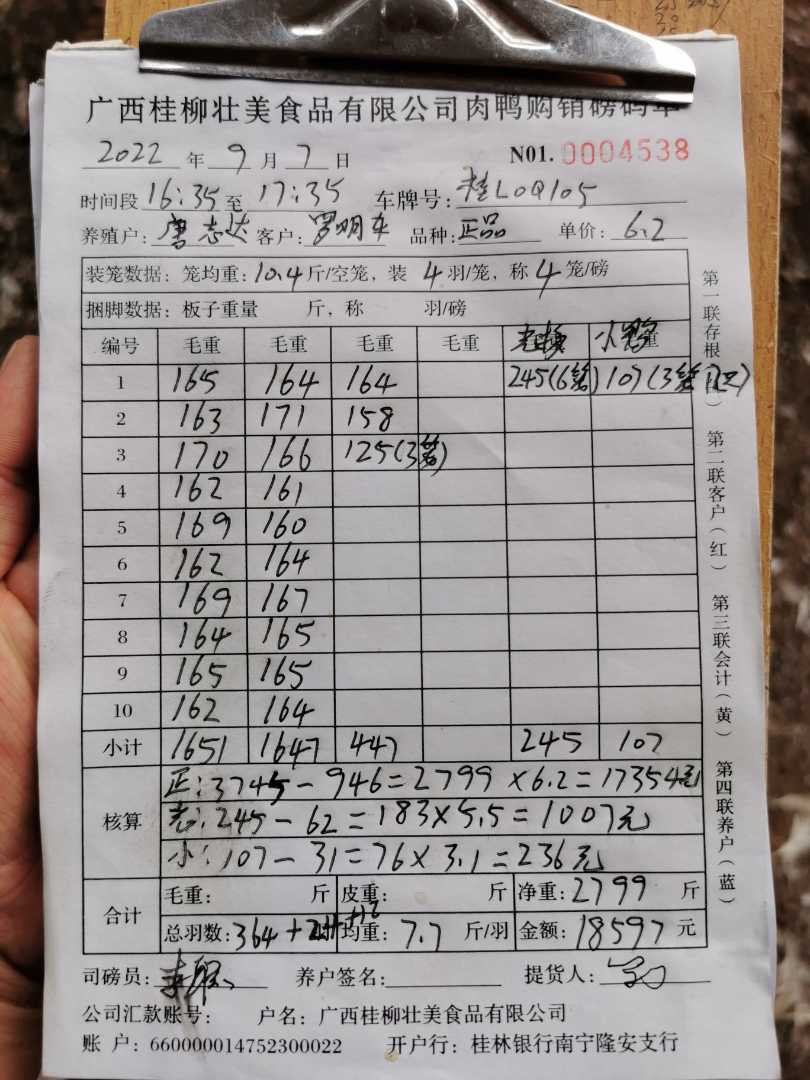 广西桂柳壮美食品有限公司肉鸭购销磅码单
2022 年 9 月 7 日 N01. 0004538
时间段 16:35 至 17:35 车牌号: 桂L0Q105
养殖户: 唐志达 客户: 罗明车 品种: 正品 单价: 6.2
装笼数据: 笼均重: 10.4 斤/空笼, 装 4 羽/笼, 称 4 笼/磅
捆脚数据: 板子重量 斤, 称 羽/磅
编号 毛重 毛重 毛重 毛重 小鸭
1 165 164 164 245(6笼) 107(3笼
2 163 171 158
3 170 166 125(3笼)
4 162 161
5 169 160
6 162 164
7 169 167
8 164 165
9 165 165
10 162 164
小计 1651 1647 447 245 107
核算
正: 3745-946=2799×6.2=17354元
老: 245-62=183×5.5=1007元
小: 107-31=76×3.1=236元
合计 毛重: 斤 皮重: 斤 净重: 2799 斤
总羽数: 364+24+12 均重: 7.7 斤/羽 金额: 18597 元
司磅员: 养户签名: 提货人:
公司汇款账号: 户名: 广西桂柳壮美食品有限公司
账 户: 660000014752300022 开户行: 桂林银行南宁隆安支行
第一联存根
第二联客户(红)
第三联会计(黄)
第四联养户(蓝)